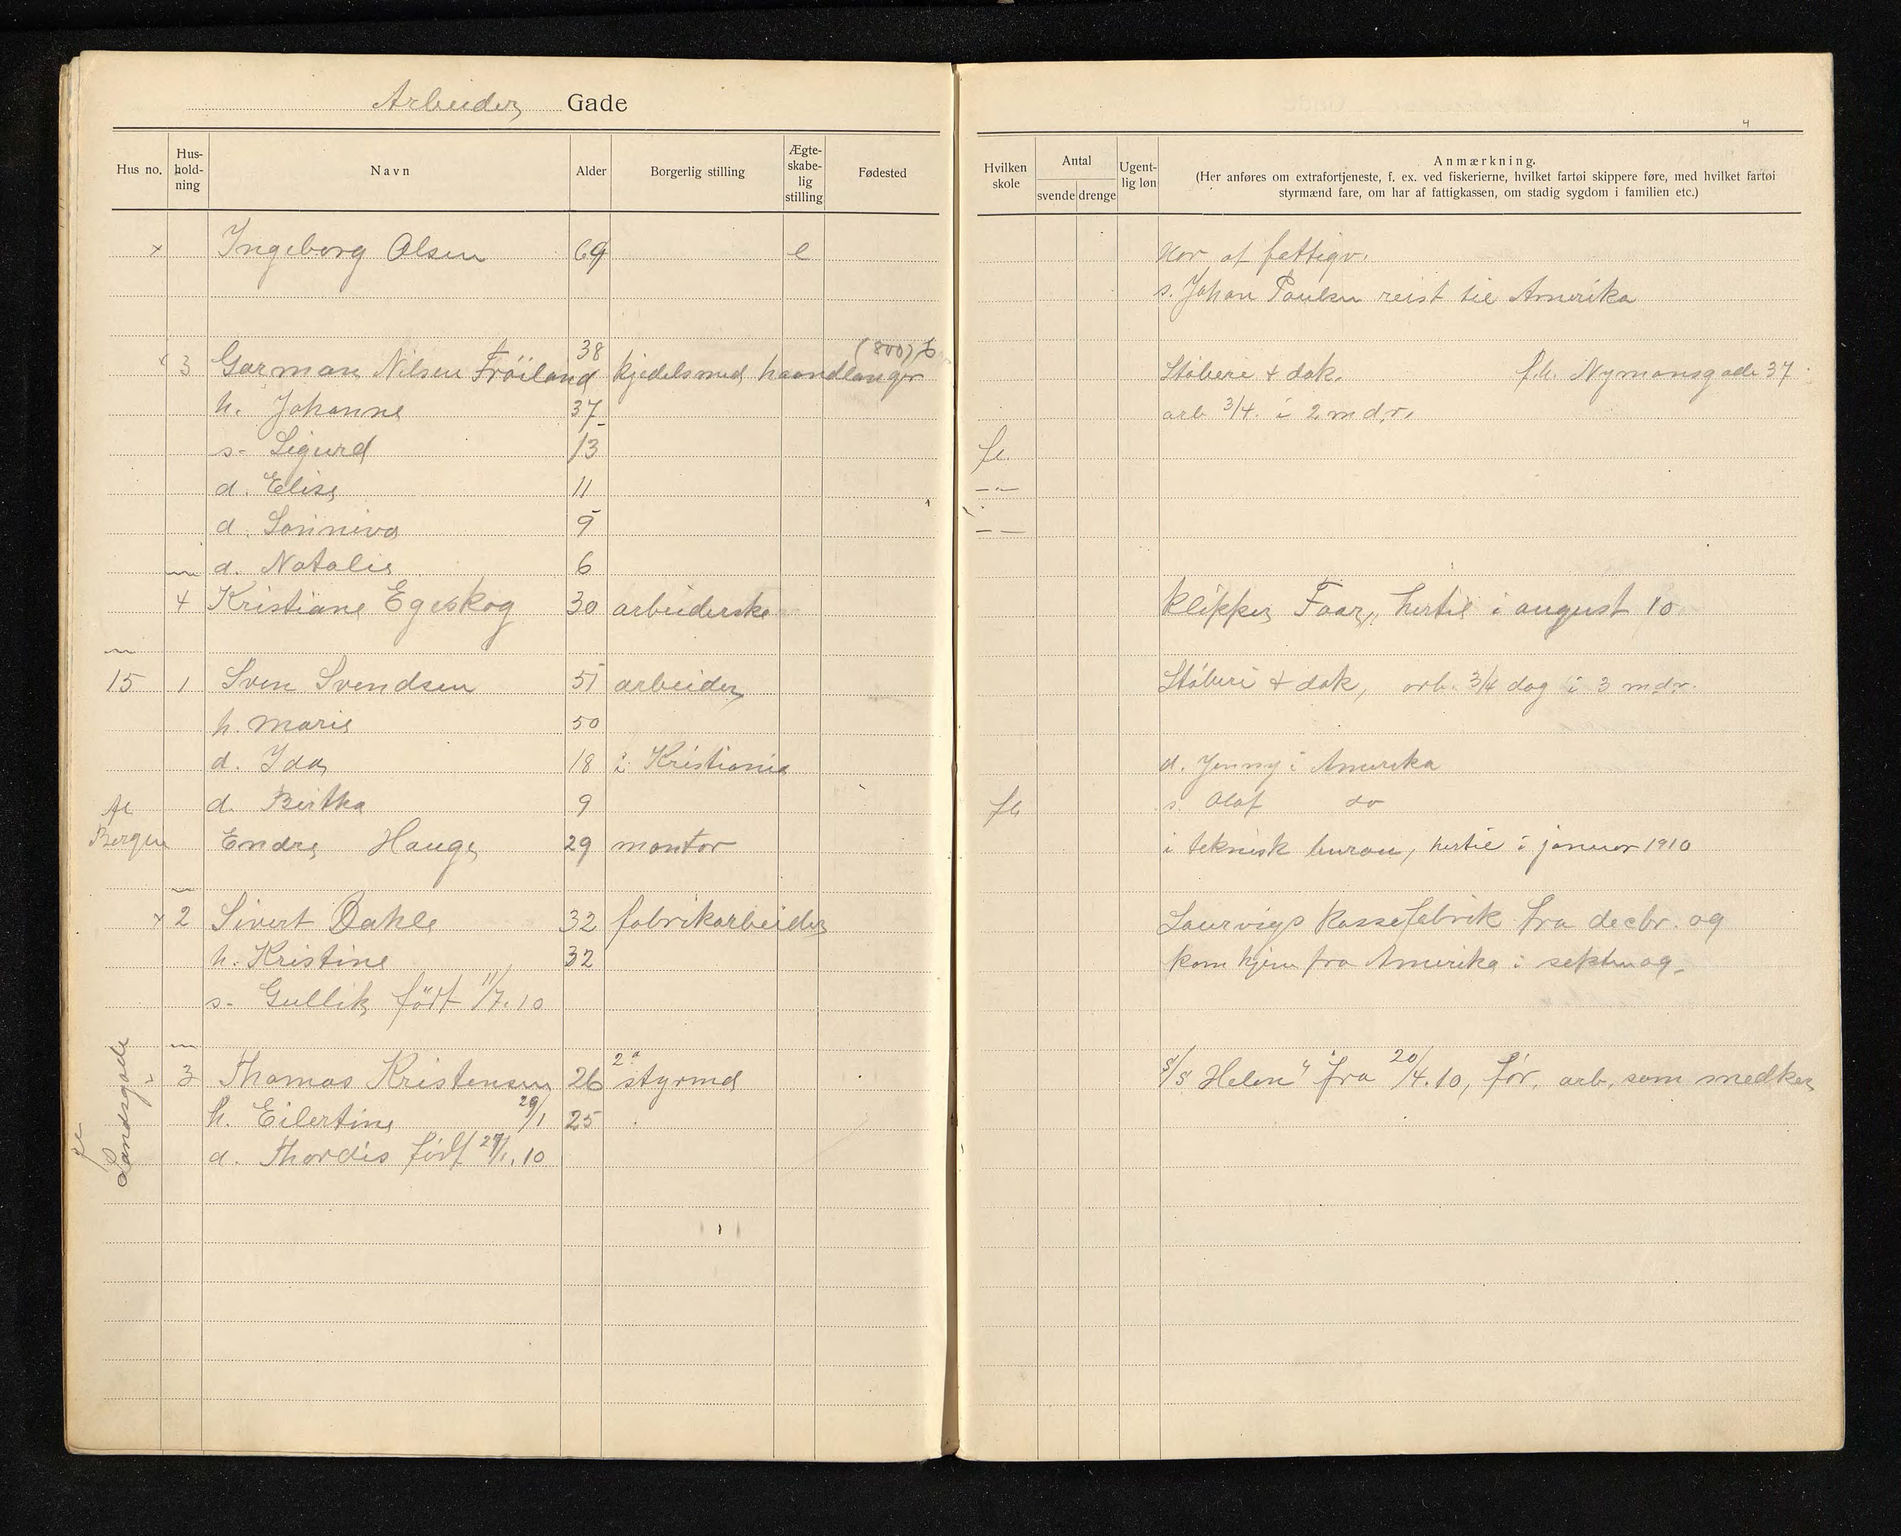 Arbeider Gade
4
Hus no. Hus-hold-ning Navn Alder Borgerlig stilling Ægte-skabe-lig stilling Fødested
Hvilken skole Antal svende drenge Ugent-lig løn Anmærkning.
(Her anføres om extrafortjeneste, f. ex. ved fiskerierne, hvilket fartøi skippere føre, med hvilket fartøi
styrmænd fare, om har af fattigkassen, om stadig sygdom i familien etc.)
x Ingeborg Olsen 69 e Har af fattigv.
s. Johan Paulsen reist til Amerika
x 3 Garman Nilsen Fröiland 38 kjedelsmed haandlanger (800) Støberi & dok. f.h. Nymansgade 37
h. Johanne 37 arb 3/4 i 2 mdr.
s- Sigurd 13 fl.
d. Elise 11 -"-
d. Sonniva 9 --
d. Natalie 6
4 Kristiane Egeskog 30 arbeiderske klipper Faar, hertil i august 10
15 1 Sven Svendsen 51 arbeider Støberi & dok, arb. 3/4 dag i 3 mdr.
h. Marie 50
d. Ida 18 i Kristiania d. Jenny i Amerika
d. Bertha 9 fl. s. Olaf do
Bergen Endre Hauge 29 montør i teknisk bureau, hertil i januar 1910
x 2 Sivert Dahle 32 fabrikarbeider Laurvigs kassefabrik fra decbr. og
h. Kristine 32 kom hjem fra Amerika i
s- Gullik født 11/7.10
3 Thomas Kristensen 26 2n styrmd S/S Helen" fra 20/4.10, før. arb. som
h. Eilertine 29/1 25
d. Thordis født 29/1.10
Landsgade